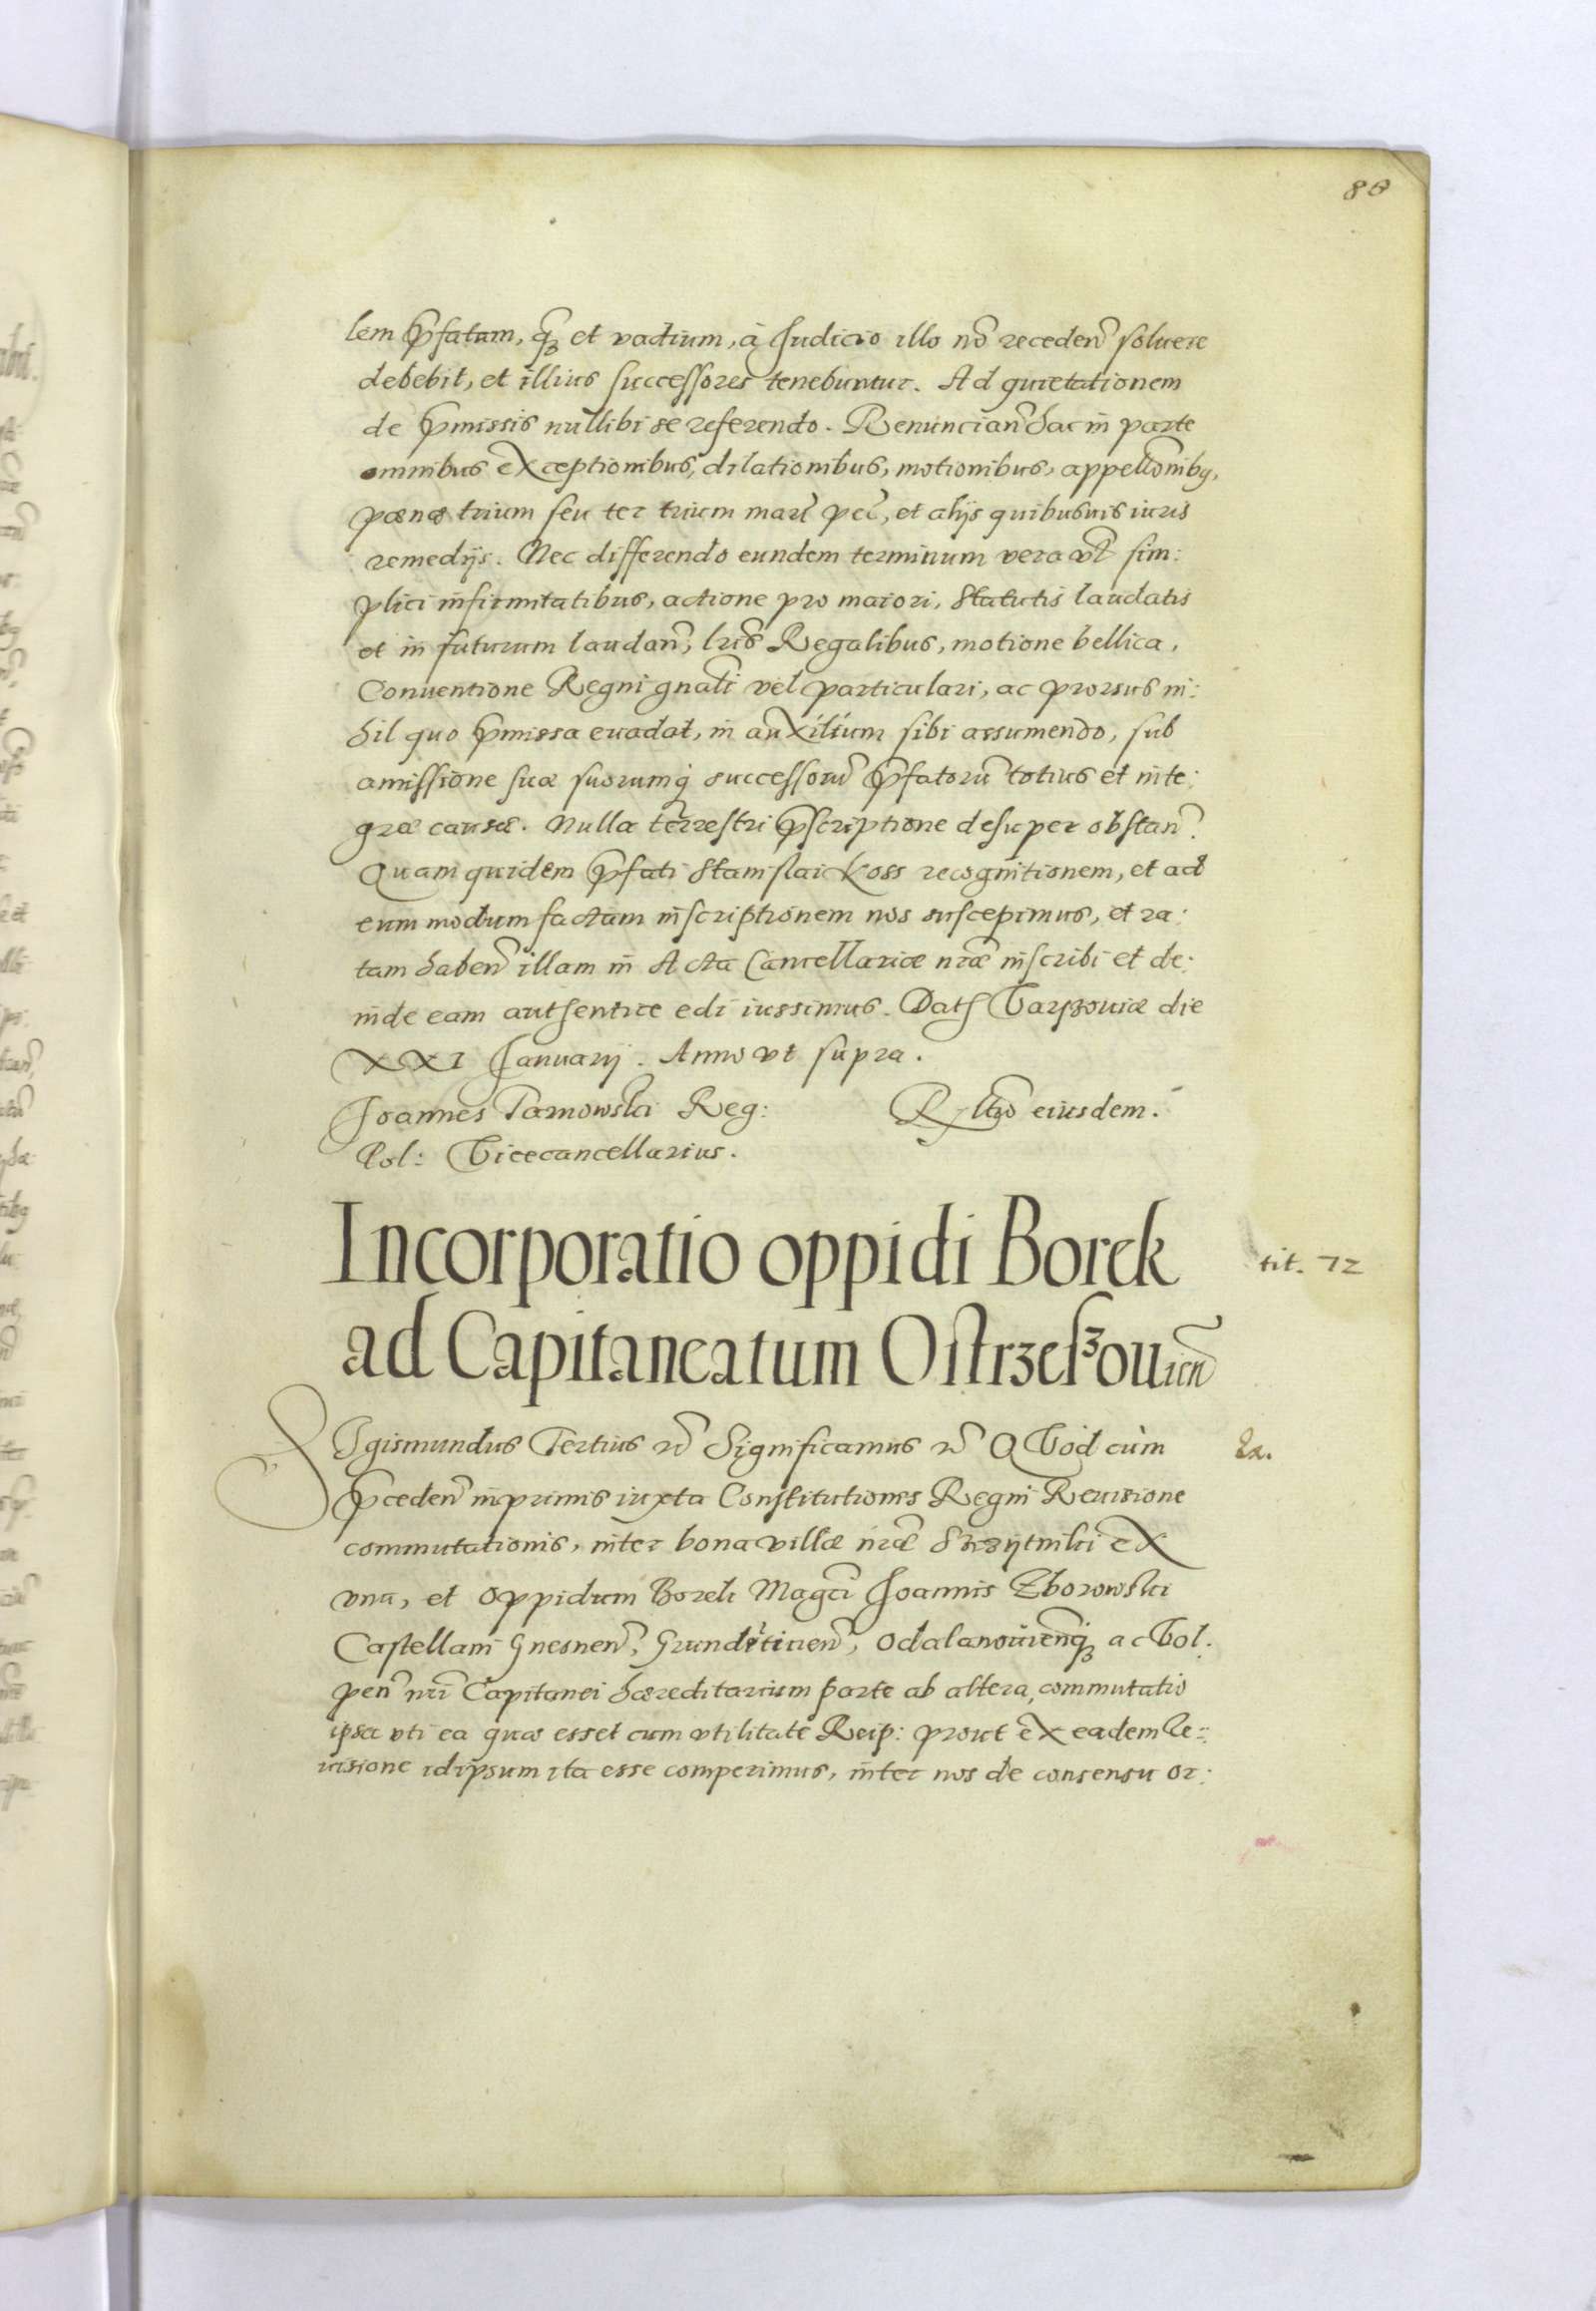 88
lem pfatam, qz et vadium, à Judicio illo nō receden̄ soluere
debebit, et illius successores tenebuntur. Ad quietationem
de pmissis nullibi se referendo. Renuncian̄ hac in parte
omnibus exceptionibus, dilationibus, motionibus, appellōnibq,
pœnæ trium seu ter trium marc̄ pec̄, et alijs quibusuis iuris
remedijs. Nec differendo eundem terminum vera vt̄ sim:
plici infirmitatibus, actione pro maiori, Statutis laudatis
et in futurum laudan̄, lris̄ Regalibus, motione bellica,
Conuentione Regni gnali̅ vel particulari, ac prorsus ni:
hil quo pmissa euadat, in auxilium sibi assumendo, sub
amissione suæ suorumq̨ successorū pfatorū totius et inte:
græ causæ. Nulla terrestri pscriptione desuper obstan̄.
Quam quidem pfati Stanislai Koss recognitionem, et ad
eum modum factam inscriptionem nos suscepimus, et ra:
tam haben̄ illam in Acta Cancellariæ nrǣ inscribi et de:
inde eam authentice edi iussimus. Dat Varszouiæ die
XXI Januarij. Anno vt supra.
Joannes Tarnowski Reg: Rltio eiusdem.
Pol: Vicecancellarius.
Incorporatio oppidi Borek
tit. 72
ad Capitaneatum Ostrzeszouien̄
SIgismundus Tertius &c̄ Significamus &c̄ QVod cùm
pceden̄ inprimis iuxta Constitutiones Regni Reuisione
commutationis, inter bona villæ nrǣ Strzytniki ex
vna, et Oppidum Borek Magci̅ Joannis Zborowski
Castellani Gnesnen̄, Gruditicen̄, Odalanouien̄qz ac Vol:
pen̄ nri̅ Capitanei hæreditarium parte ab altera, commutatio
ipsa vti ea quæ esset cum vtilitate Reip: prout ex eadem Re:
uisione idipsum ita esse comperimus, inter nos de consensu or: